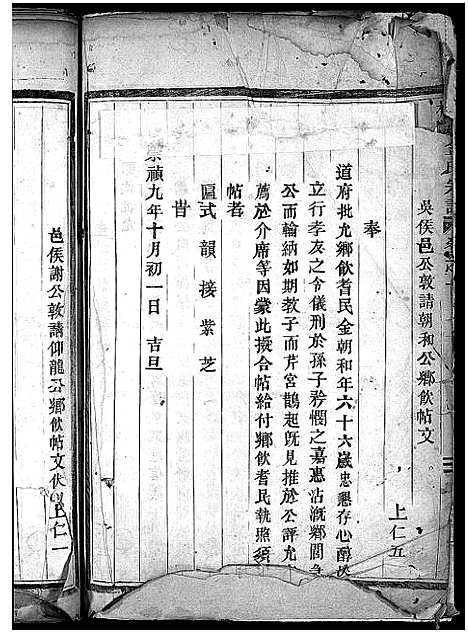 吳侯邑公敦請朝和公鄉飲帖文
上仁五
奉
道府批允鄉飲耆民金朝和年六十六歲忠懇存心醇
立行孝友之令儀刑於孫子矜憫之嘉惠沾溉鄉閭急
公而輸納如期教子而芹宮鵲起旣見推於公評允
薦於介席等因蒙此擬合帖給付鄉飲耆民執照須
帖者
匾式 韻接紫芝
旹
崇禎九年十月初一日 吉旦
邑侯謝公敦請仰龍公鄉飲帖文
上仁一